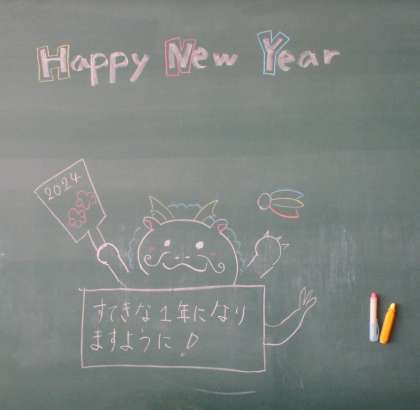 Happy New Year
2024
すてきな1年になり
ますように!